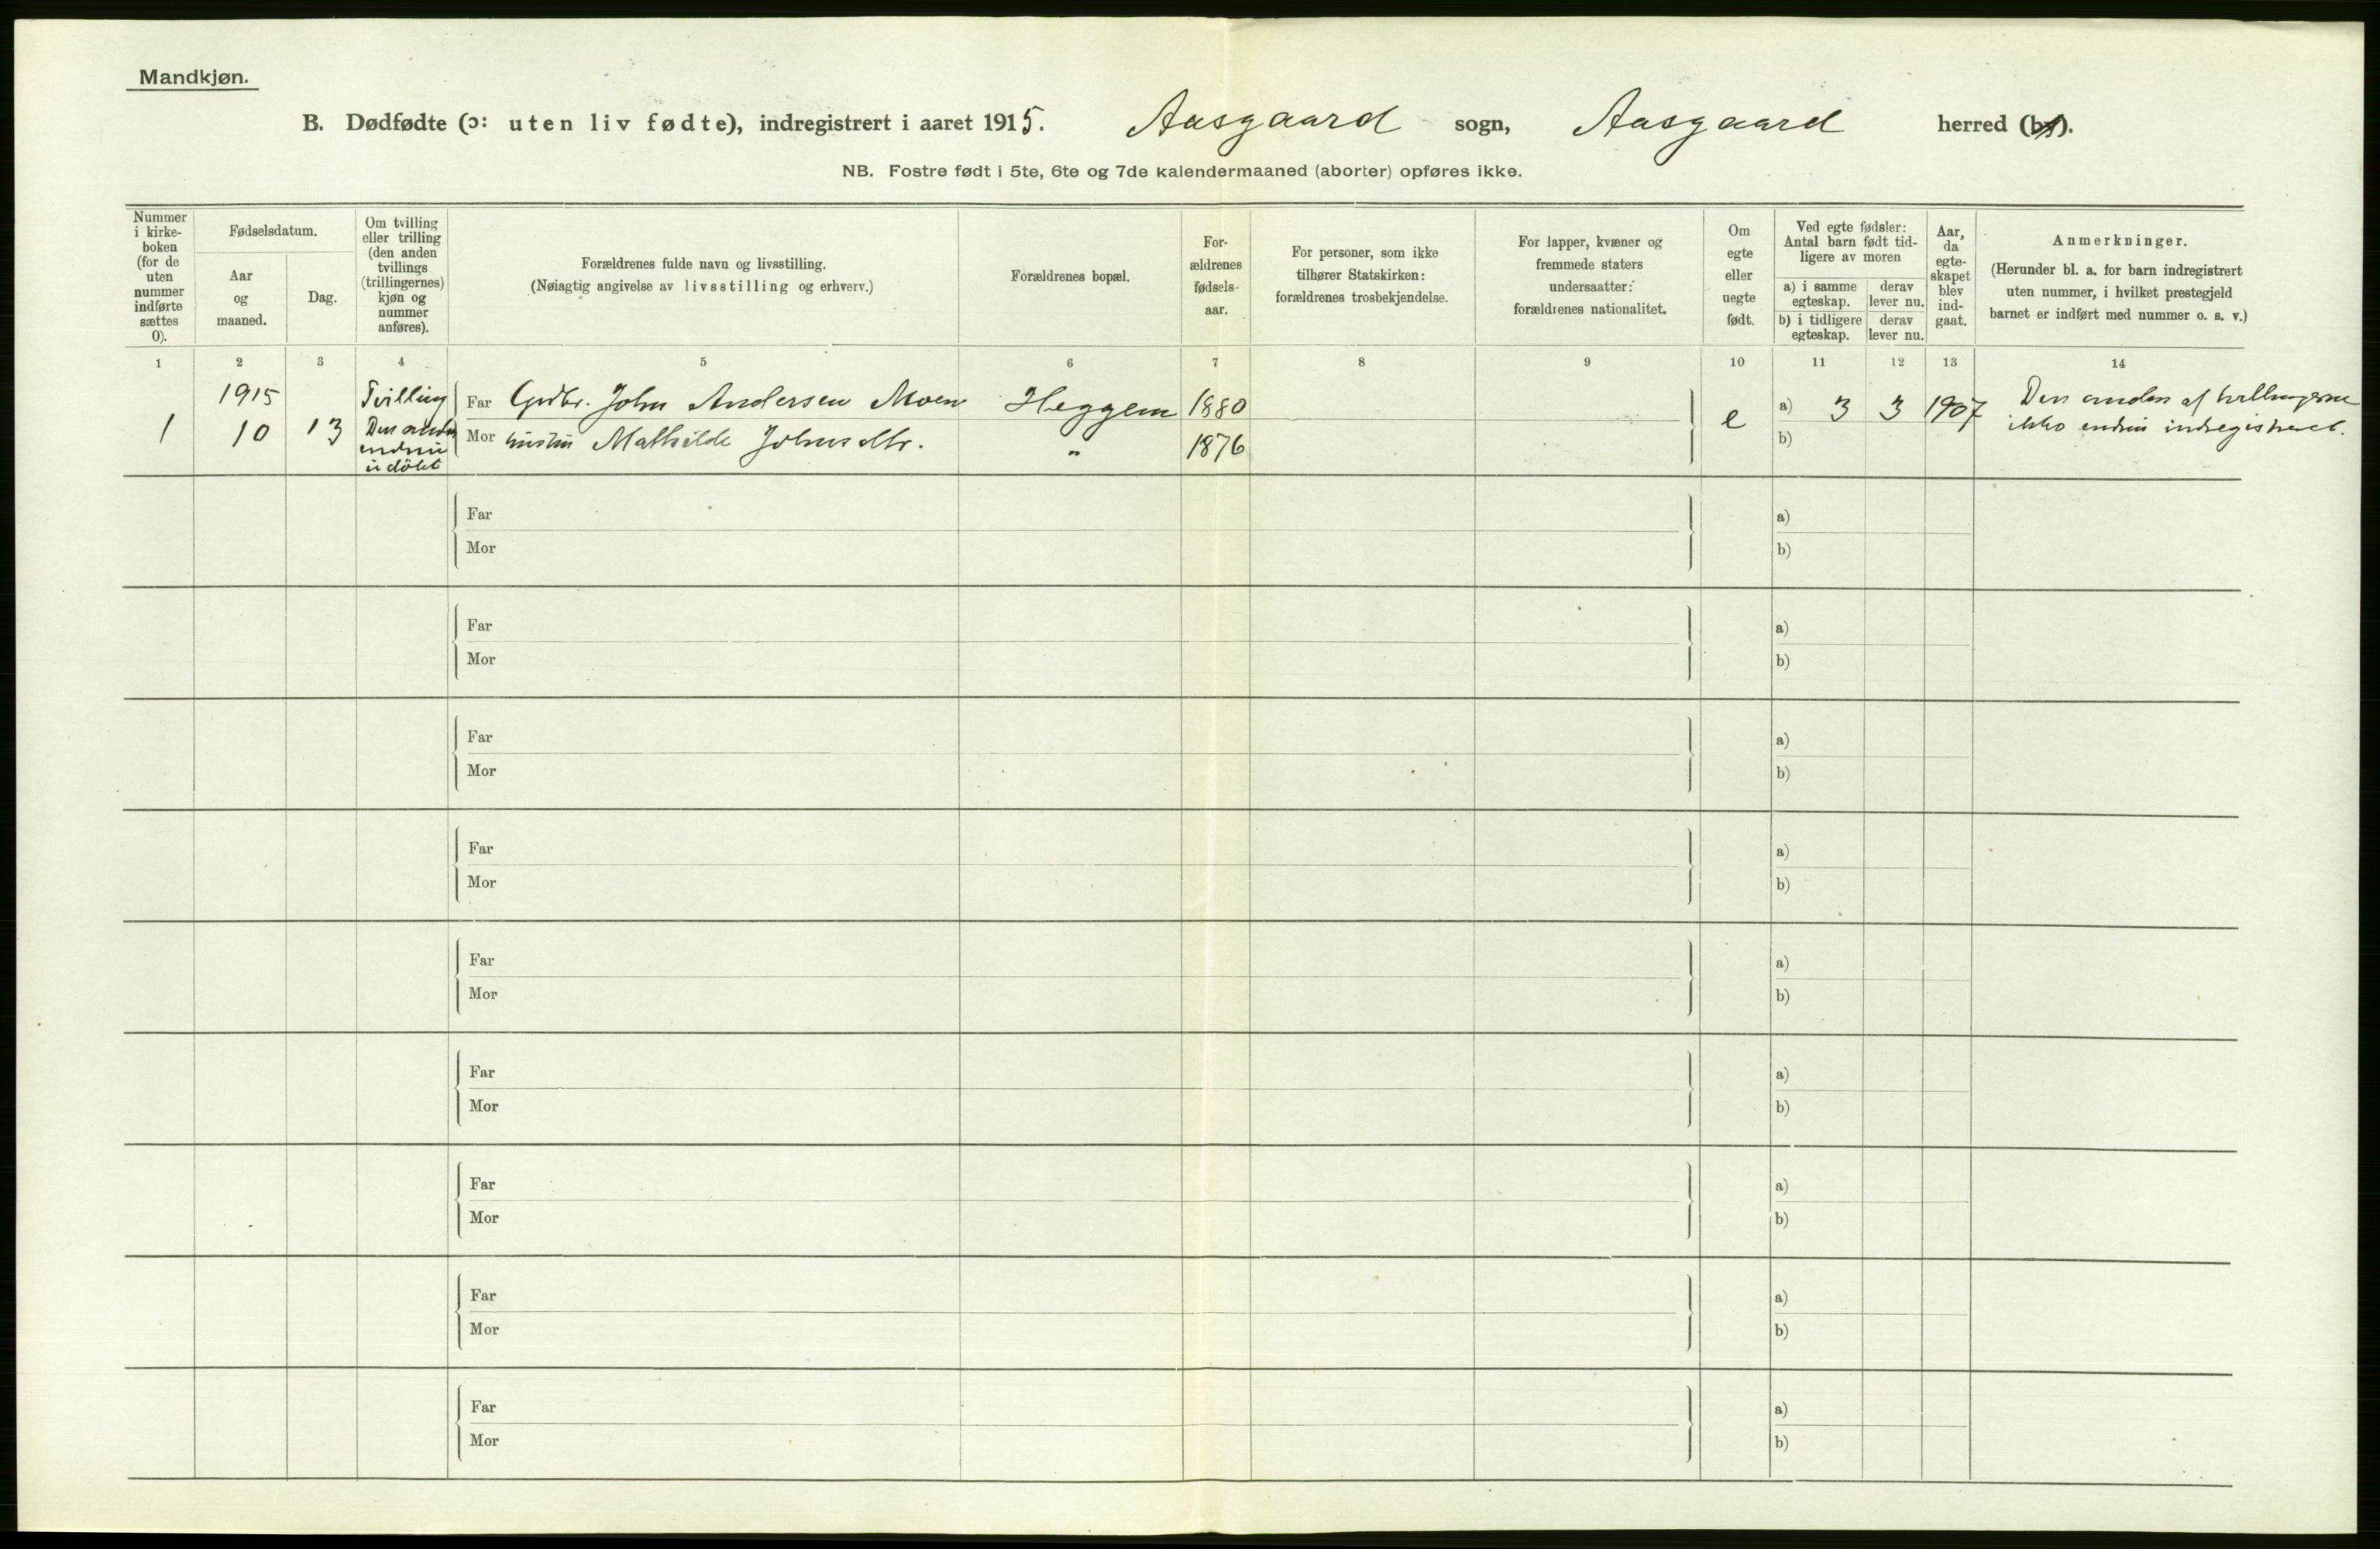 Mandkjøn.
B. Dødfødte (ɔ: uten liv fødte), indregistrert i aaret 1915. Aasgaard sogn, Aasgaard herred (by).
NB. Fostre født i 5te, 6te og 7de kalendermaaned (aborter) opføres ikke.
Nummer
i kirke-
boken
(for de
uten
nummer
indførte
sættes
0).
Fødselsdatum.
Aar
og
maaned.
Dag.
Om tvilling
eller trilling
(den anden
tvillings
(trillingernes)
kjøn og
nummer
anføres).
Forældrenes fulde navn og livsstilling.
(Nøiagtig angivelse av livsstilling og erhverv.)
Forældrenes bopæl.
For-
ældrenes
fødsels-
aar.
For personer, som ikke
tilhører Statskirken:
forældrenes trosbekjendelse.
For lapper, kvæner og
fremmede staters
undersaatter:
forældrenes nationalitet.
Om
egte
eller
uegte
født.
Ved egte fødsler:
Antal barn født tid-
ligere av moren
a) i samme
egteskap.
derav
lever nu.
b) i tidligere
egteskap.
derav
lever nu.
Aar,
da
egte-
skapet
blev
ind-
gaat.
Anmerkninger.
(Herunder bl. a. for barn indregistrert
uten nummer, i hvilket prestegjeld
barnet er indført med nummer o. s. v.)
1 2 3 4 5 6 7 8 9 10 11 12 13 14
1915 Tvilling Far Grdbr. John Andersen Moen Heggem 1880 e a) 3 3 1907 Den anden af tvillingerne
1 10 13 Den anden Mor hustru Mathilde Johnsdtr. " 1876 b) ikke endnu indregistreret.
endnu
udöbt
Far a)
Mor b)
Far a)
Mor b)
Far a)
Mor b)
Far a)
Mor b)
Far a)
Mor b)
Far a)
Mor b)
Far a)
Mor b)
Far a)
Mor b)
Far a)
Mor b)